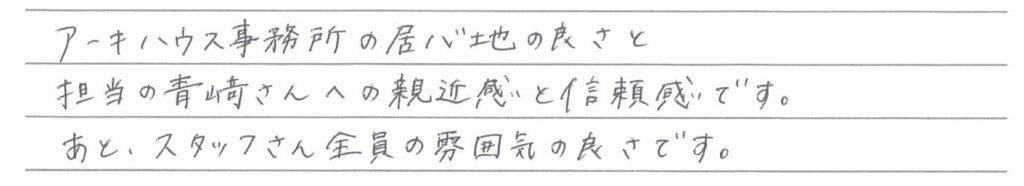 アーキハウス事務所の居心地の良さと
担当の青﨑さんへの親近感と信頼感です。
あと、スタッフさん全員の雰囲気の良さです。